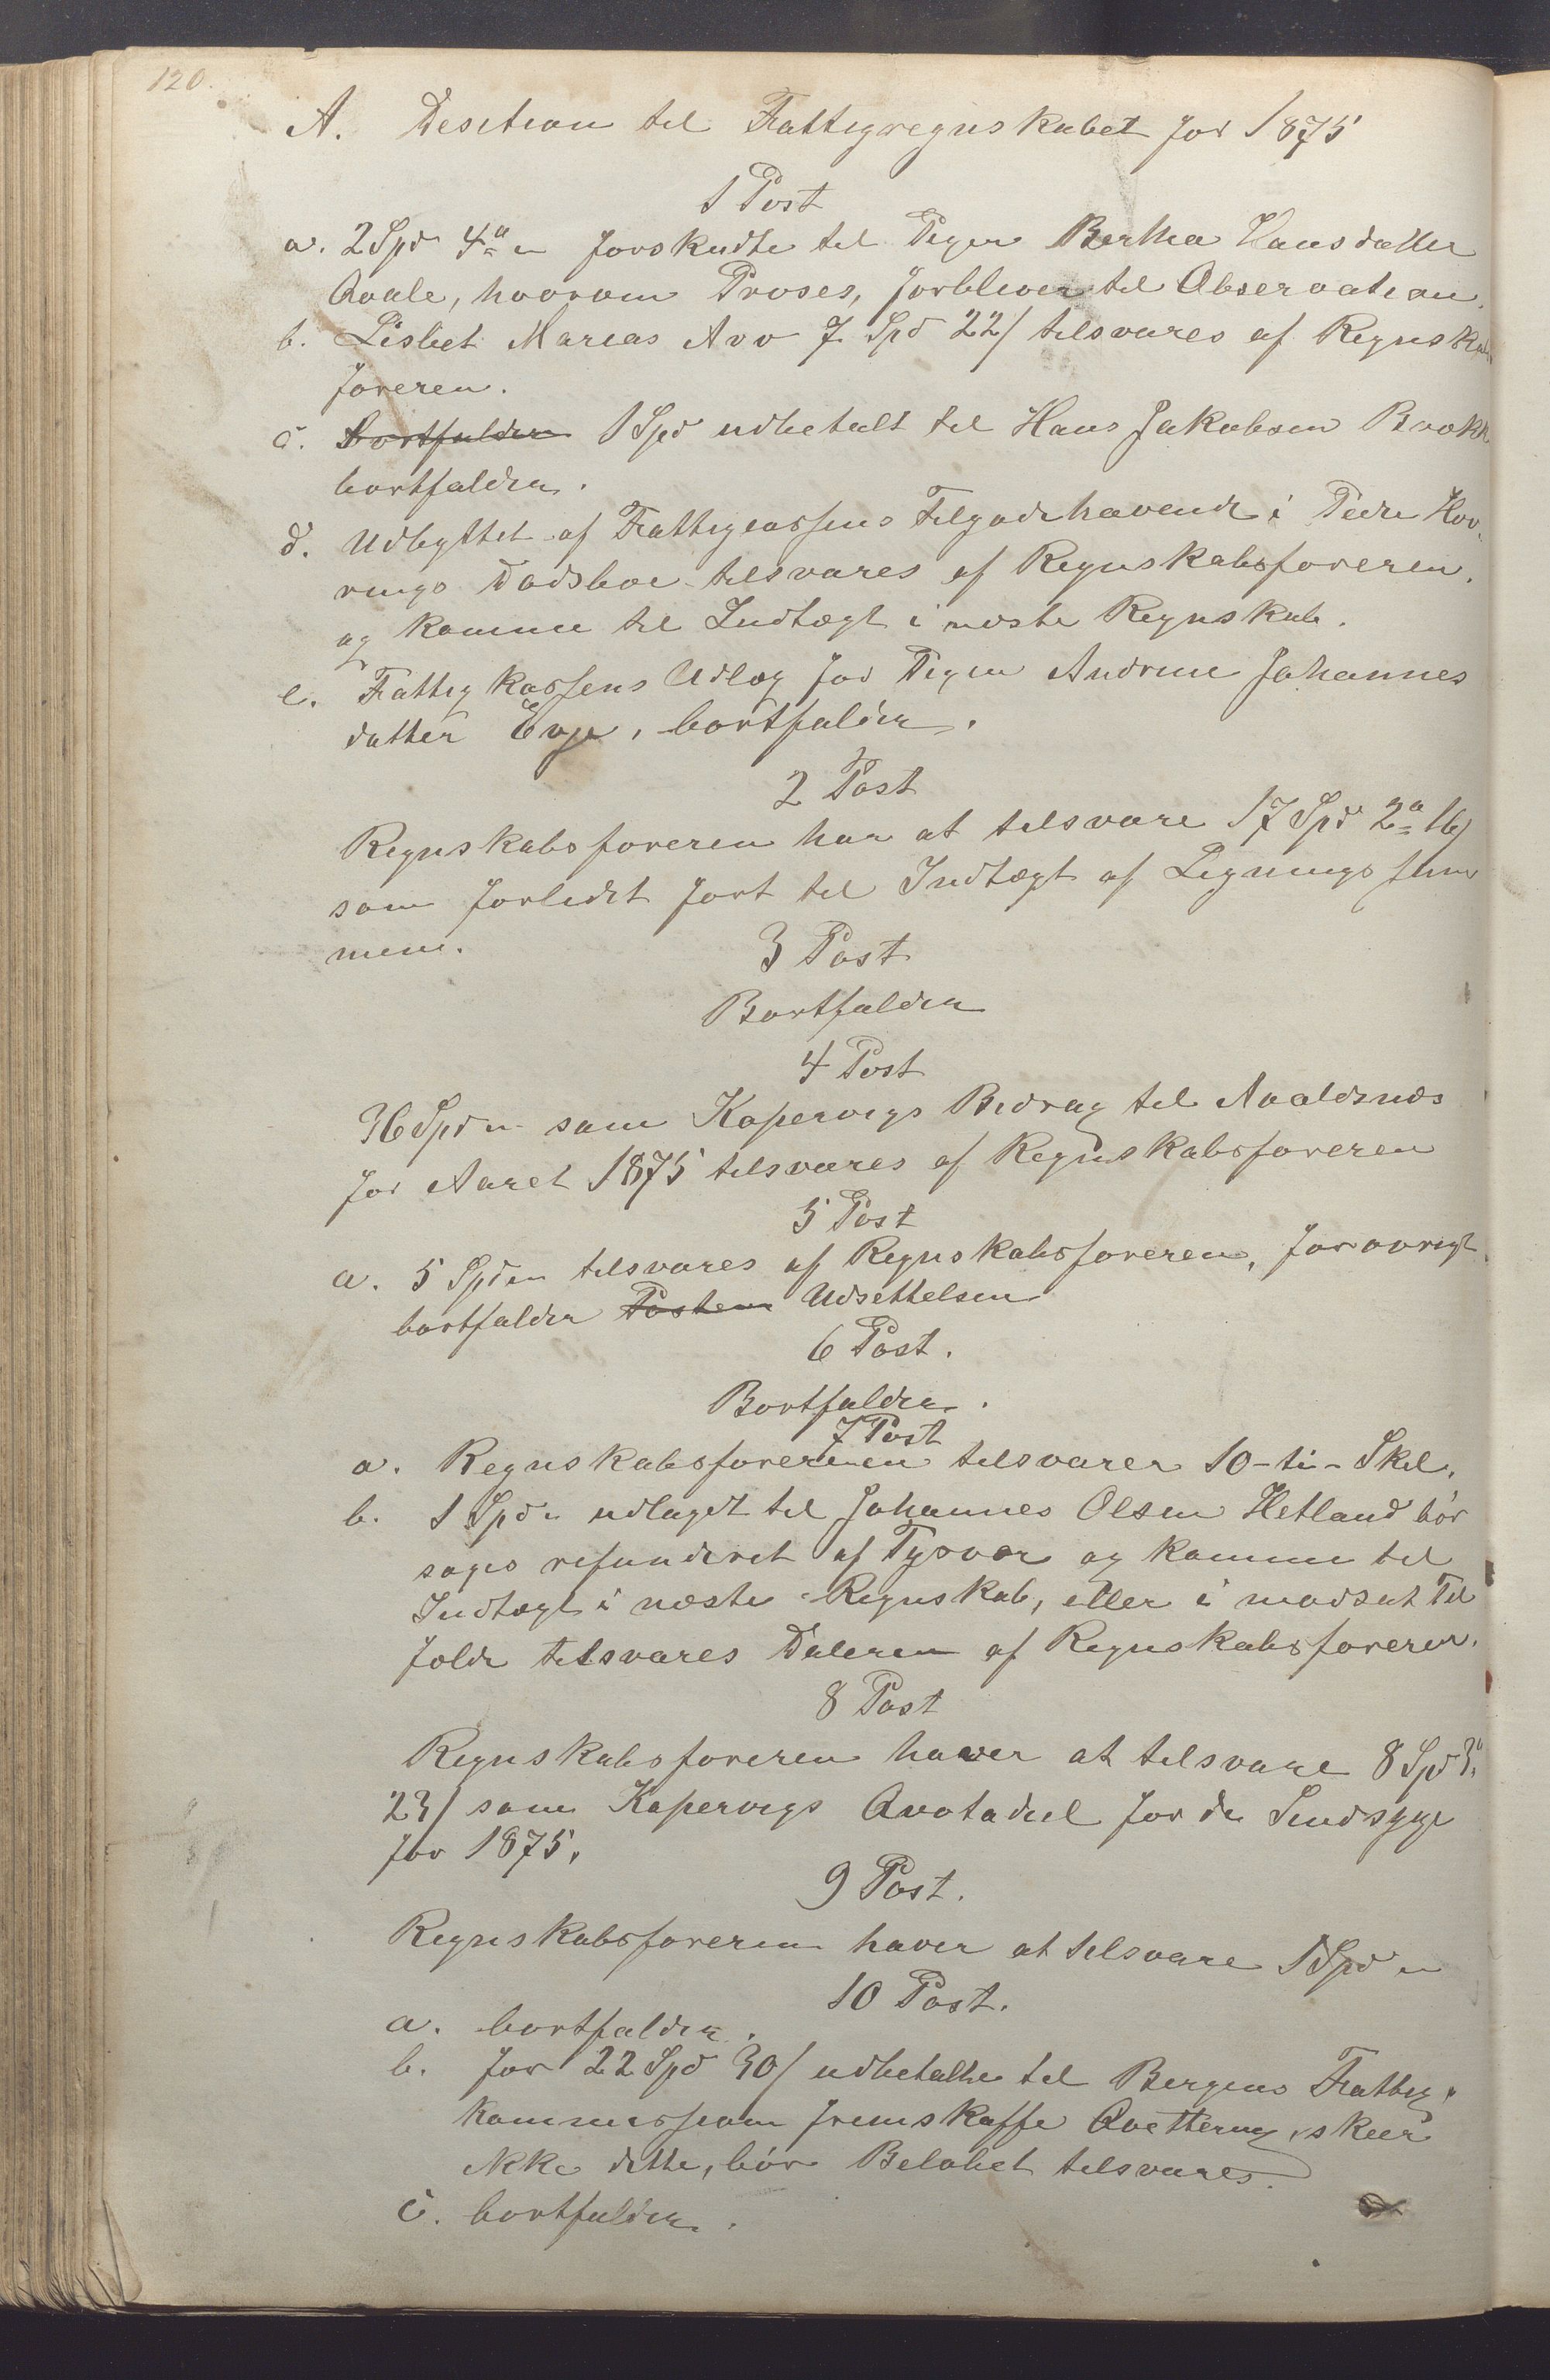 120.
A. Desition til Fattigregnskabet for 1875
1 Post
a. 2 Spd 4 " forskudte til Pigen Bertha Hansdatter
Qvale, hvorom Proses, forbliver til Observation.
b. Lisbet Marias Arv 7 Spd 22/ tilsvares af Regnskabs
føreren.
c. Bortfalder 1 Spd udbetalt til Hans Jakobsen
bortfalder.
d. Udbyttet af Fattigcassens Tilgodehavende i Peder Hov-
rings Dødsboe tilsvares af Regnskabsføreren,
og komme til Indtægt i næste Regnskab.
e. Fattigkassens Udlæg for Pigen Andrine Johannes
datter Evje, bortfalder.
2 Post
Regnskabsføreren har at tilsvare 17 Spd 2 16/
som forledet ført til Indtægt af Ligningssum
men.
3 Post
Bortfalder
4 Post
36 Spd " som Kopervigs Bidrag til Avaldsnæs
for Aaret 1875 tilsvares af Regnskabsføreren
5 Post
a. 5 Spd " tilsvares af Regnskabsføreren, forøvrigt
bortfalder Posten Udsettelsen
6 Post.
Bortfalder.
7 Post
a. Regnskabsføreren tilsvarer 10 - ti - Skil.
b. 1 Spd " udlaget til Johannes Olsen Hetland bør
søges refunderet af Tysvær og komme til
Indtægt i næste Regnskab, eller i modsat Til
fælde tilsvares Daleren af Regnskabsføreren.
8 Post
Regnskabsføreren haver at tilsvare 8 Spd 3
23/ som Kopervigs Qvotadeel for de Sindsyge
for 1875.
9 Post.
Regnskabsføreren haver at tilsvare 1 Spd "
10 Post.
a. bortfalder.
b. for 22 Spd 30/ udbetalte til Bergens Fattig-
kommission fremskaffe Qvettering, skeer
ikke dette, bør Beløbet tilsvares.
c. bortfalder.